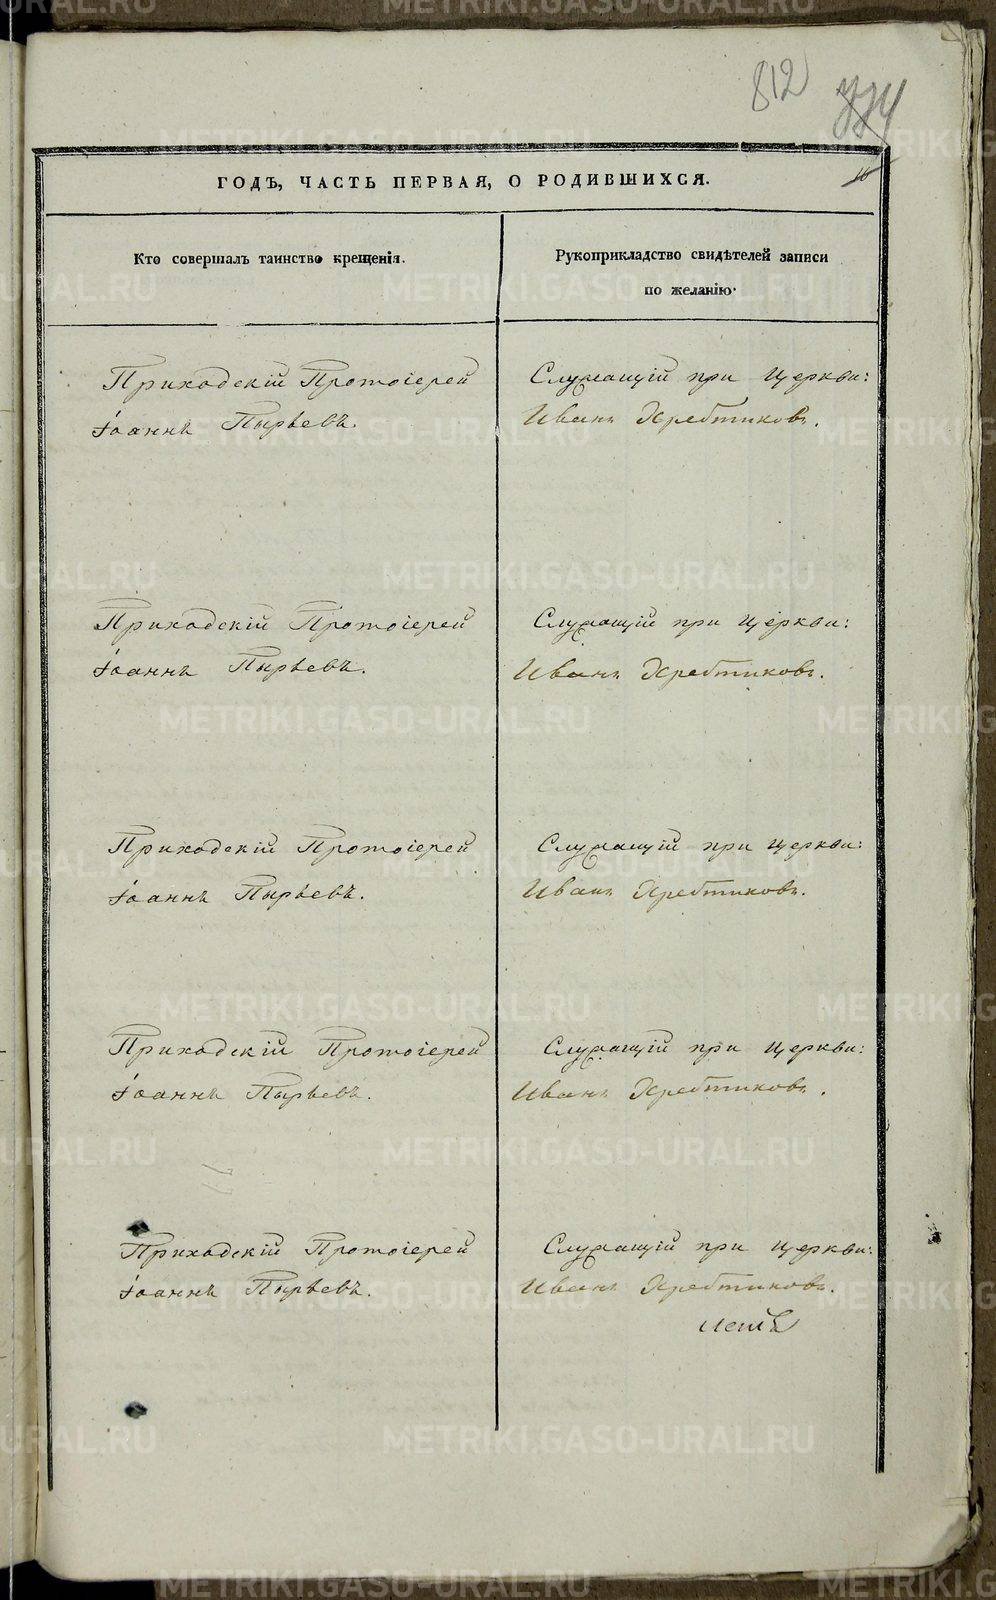 812
774
16
ГОДЪ, ЧАСТЬ ПЕРВАЯ, О РОДИВШИХСЯ.
Кто совершалъ таинство крещенія.
Рукоприкладство свидѣтелей записи
по желанію.
Приходскій Протоіерей
Іоаннъ Пырьевъ.
Служащій при церкви:
Иванъ Хребтиковъ.
Приходскій Протоіерей
Іоаннъ Пырьевъ.
Служащій при церкви:
Иванъ Хребтиковъ.
Приходскій Протоіерей
Іоаннъ Пырьевъ.
Служащій при церкви:
Иванъ Хребтиковъ.
Приходскій Протоіерей
Іоаннъ Пырьевъ.
Служащій при церкви:
Иванъ Хребтиковъ.
Приходскій Протоіерей
Іоаннъ Пырьевъ.
Служащій при церкви:
Иванъ Хребтиковъ.
METRIKI.GASO-URAL.RU